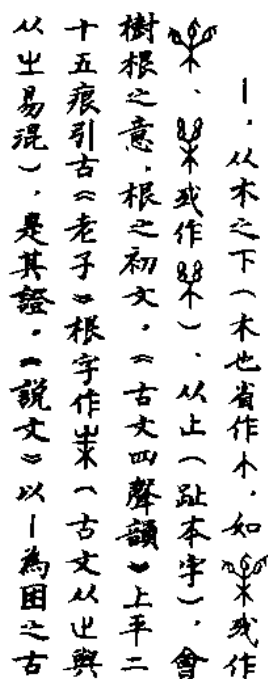 丨，从木之下（木也省作朩，如或作
、或作），从止（趾本字），會
樹根之意，根之初文。《古文四聲韻》上平二
十五痕引古《老子》根字作（古文从止與
从㞢易混），是其證。《說文》以丨為困之古